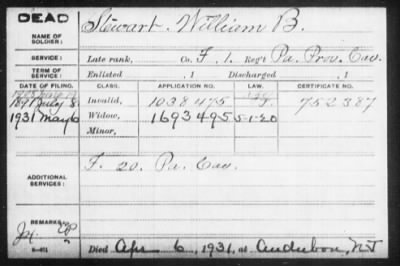 DEAD
NAME OF SOLDIER: Stewart, William B.
SERVICE: Late rank, Co. F, 1 Reg't Pa. Prov. Cav.
TERM OF SERVICE: Enlisted , 1 Discharged , 1
DATE OF FILING. CLASS. APPLICATION NO. LAW. CERTIFICATE NO.
1891 July 8 Invalid, 1038475 752387
1931 May 6 Widow, 1693495 5-1-20
Minor,
ADDITIONAL SERVICES: F. 20. Pa. Cav.
REMARKS:
Died Apr 6, 1931, at Audubon, NJ